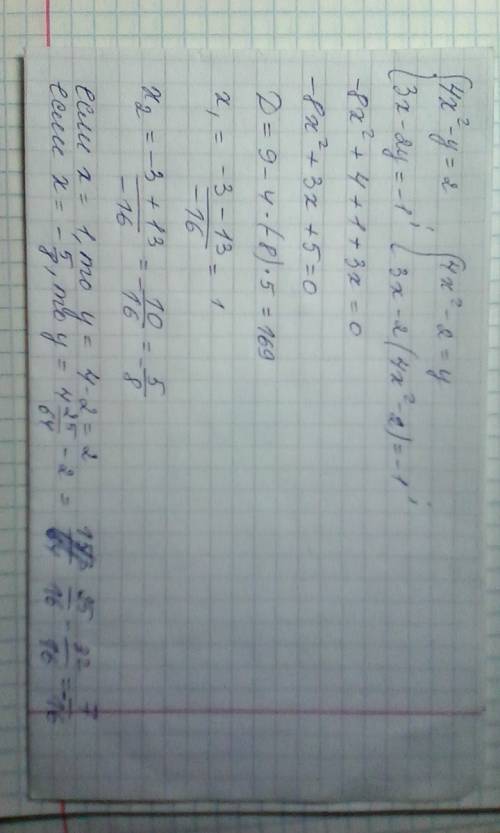 {4x² - y = 2 {4x² - 2 = y
{3x - 2y = -1' {3x - 2(4x² - 2) = -1'
-8x² + 4 + 1 + 3x = 0
-8x² + 3x + 5 = 0
D = 9 - 4·(-8)·5 = 169
x₁ = (-3 - 13)/(-16) = 1
x₂ = (-3 + 13)/(-16) = -10/16 = -5/8
если x = 1, то y = 4 - 2 = 2
если x = -5/8, то y = 4 25/64 - 2 = 25/16 - 32/16 = -7/16